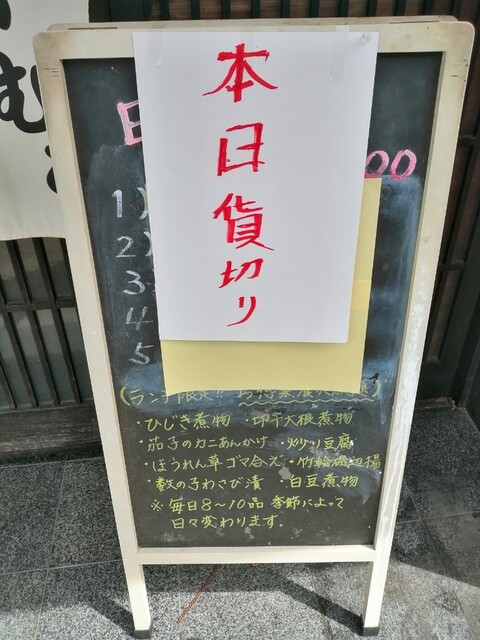 本日貨切り
00
1)
2)
3
4
5
(ランチ限定!!
・ひじき煮物 ・切干大根煮物
・茄子のカニあんかけ ・炒り豆腐
・ほうれん草ゴマ合え ・竹輪磯辺揚
・数の子わさび漬 ・白豆煮物
※毎日8〜10品 季節によって
日々変わります。
む